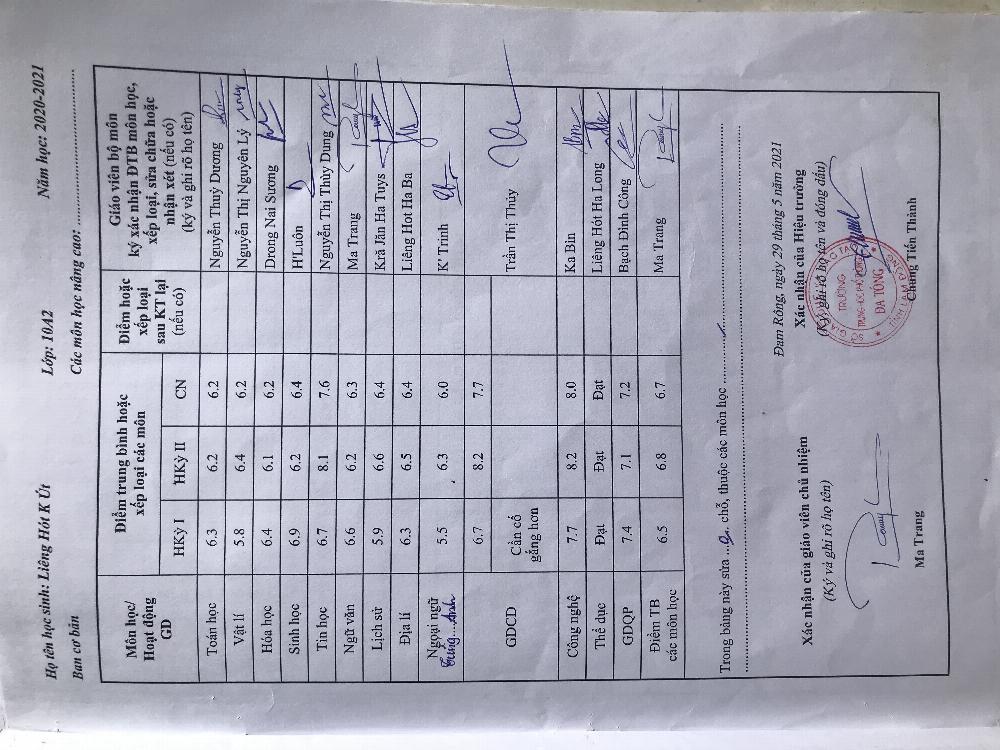 Họ tên học sinh: Liêng Hót K Út Lớp: 10A2 Năm học: 2020-2021
Ban cơ bản Các môn học nâng cao:
Môn học/ Hoạt động GD
Điểm trung bình hoặc xếp loại các môn
HKỳ I HKỳ II CN
Điểm hoặc xếp loại sau KT lại (nếu có)
Giáo viên bộ môn ký xác nhận ĐTB môn học, xếp loại, sửa chữa hoặc nhận xét (nếu có) (ký và ghi rõ họ tên)
Toán học 6.3 6.2 6.2 Nguyễn Thuỳ Dương
Vật lí 5.8 6.4 6.2 Nguyễn Thị Nguyên Lý
Hóa học 6.4 6.1 6.2 Drong Nai Sương
Sinh học 6.9 6.2 6.4 H'Luôn
Tin học 6.7 8.1 7.6 Nguyễn Thị Thùy Dung
Ngữ văn 6.6 6.2 6.3 Ma Trang
Lịch sử 5.9 6.6 6.4 Kră Jăn Ha Tuys
Địa lí 6.3 6.5 6.4 Liêng Hot Ha Ba
Ngoại ngữ Tiếng Anh 5.5 6.3 6.0 K' Trinh
GDCD 6.7 8.2 7.7 Trần Thị Thúy
Cần cố gắng hơn
Công nghệ 7.7 8.2 8.0 Ka Bin
Thể dục Đạt Đạt Đạt Liêng Hót Ha Long
GDQP 7.4 7.1 7.2 Bạch Đình Công
Điểm TB các môn học 6.5 6.8 6.7 Ma Trang
Trong bảng này sửa chỗ, thuộc các môn học
Đam Rông, ngày 29 tháng 5 năm 2021
Xác nhận của giáo viên chủ nhiệm
(Ký và ghi rõ họ tên)
Ma Trang
Xác nhận của Hiệu trưởng
(Ký, ghi rõ họ tên và đóng dấu)
TRƯỜNG
ĐẠ TÔNG
Chung Tiến Thành